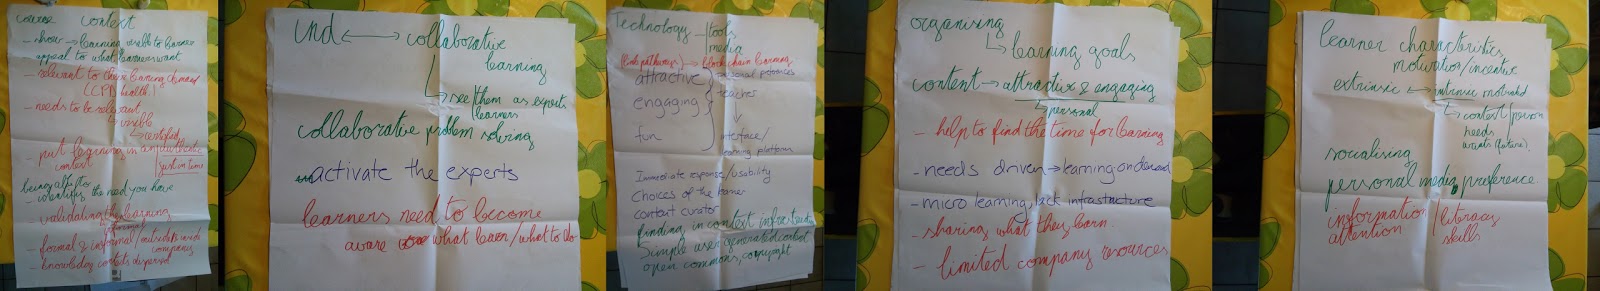 course context
- show → learning visible to learner
appeal to what learners want
- relevant to their learning demand
(CPD, health!)
- needs to be relevant
↳ visible
↳ certified
- put learning in an authentic
context just in time
being able to
identify the need you have
- validating the learning
informal
- formal & informal / outside & inside
company
- knowledge contexts dispersed
ind ↔ collaborative
learning
↳ see them as experts
learners
collaborative problem solving
activate the experts
learners need to become
aware what learn / what to do
Technology - tools
media
(link pathways) → blockchain learning
attractive personal preferences
engaging teacher
fun interface /
learning platform
Immediate response / usability
choices of the learner
content curator
finding in context info
Simple user generated content
open commons, copyright
organising
↳ learning goals
content → attractive & engaging
↳ personal
- help to find the time for learning
- needs driven → learning on demand
- micro learning, lack infrastructure
- sharing what they learn.
- limited company resources
learner characteristics
motivation / incentive
extrinsic ↔ intrinsic motivated
↳ context / person
needs
wants (future).
socialising
personal media preference.
information / literacy
attention skills